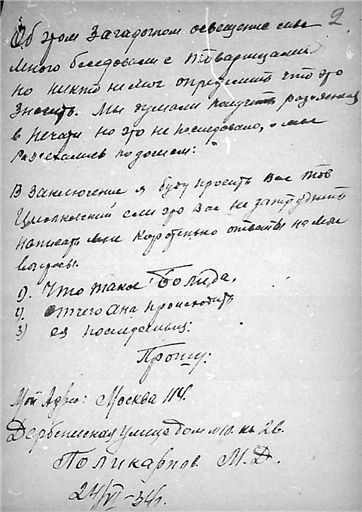 2
Об этом загадочном освещение мы
много беседовали с товарищами
но никто не мог определить что это
значить. Мы думали получить разъяснения
в печати но это не последовало, и мы
разъехались по домам:
В заключение я буду просить Вас тов
Циолковский если это Вас не затруднить
написать мне коротенько ответы на мои
вопросы.
1). Что такое Болида,
2) отчего она происходить
3) ея последствия:
Прошу:
Мой Адрес: Москва 114.
Дербеневская улица дом № кв 26.
Поликарпов М. Д.
24/VI-34г.